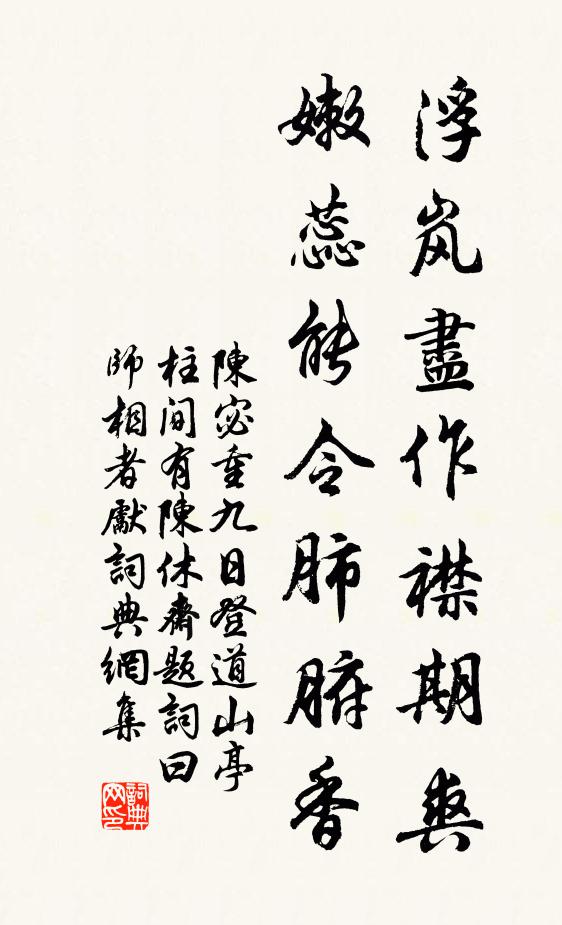 浮岚盡作襟期爽
嫩蕊能令肺腑香
陳宓重九日登道山亭
柱間有陳休齋題詞曰
師相者獻詞典網集
詞典网印